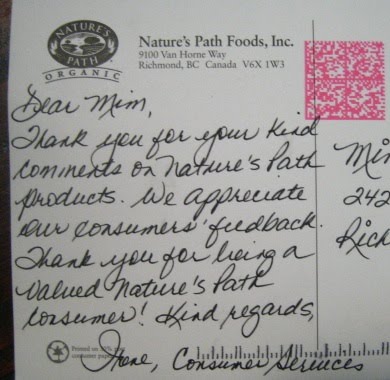 NATURE'S PATH
ORGANIC
Nature's Path Foods, Inc.
9100 Van Horne Way
Richmond, BC Canada V6X 1W3
Dear Mim,
Thank you for your kind
comments on Nature's Path
products. We appreciate
our consumers' feedback.
Thank you for being a
valued Nature's Path
consumer! Kind regards,
Irene, Consumer Services
Mi
242
Rich
Printed on
consumer paper